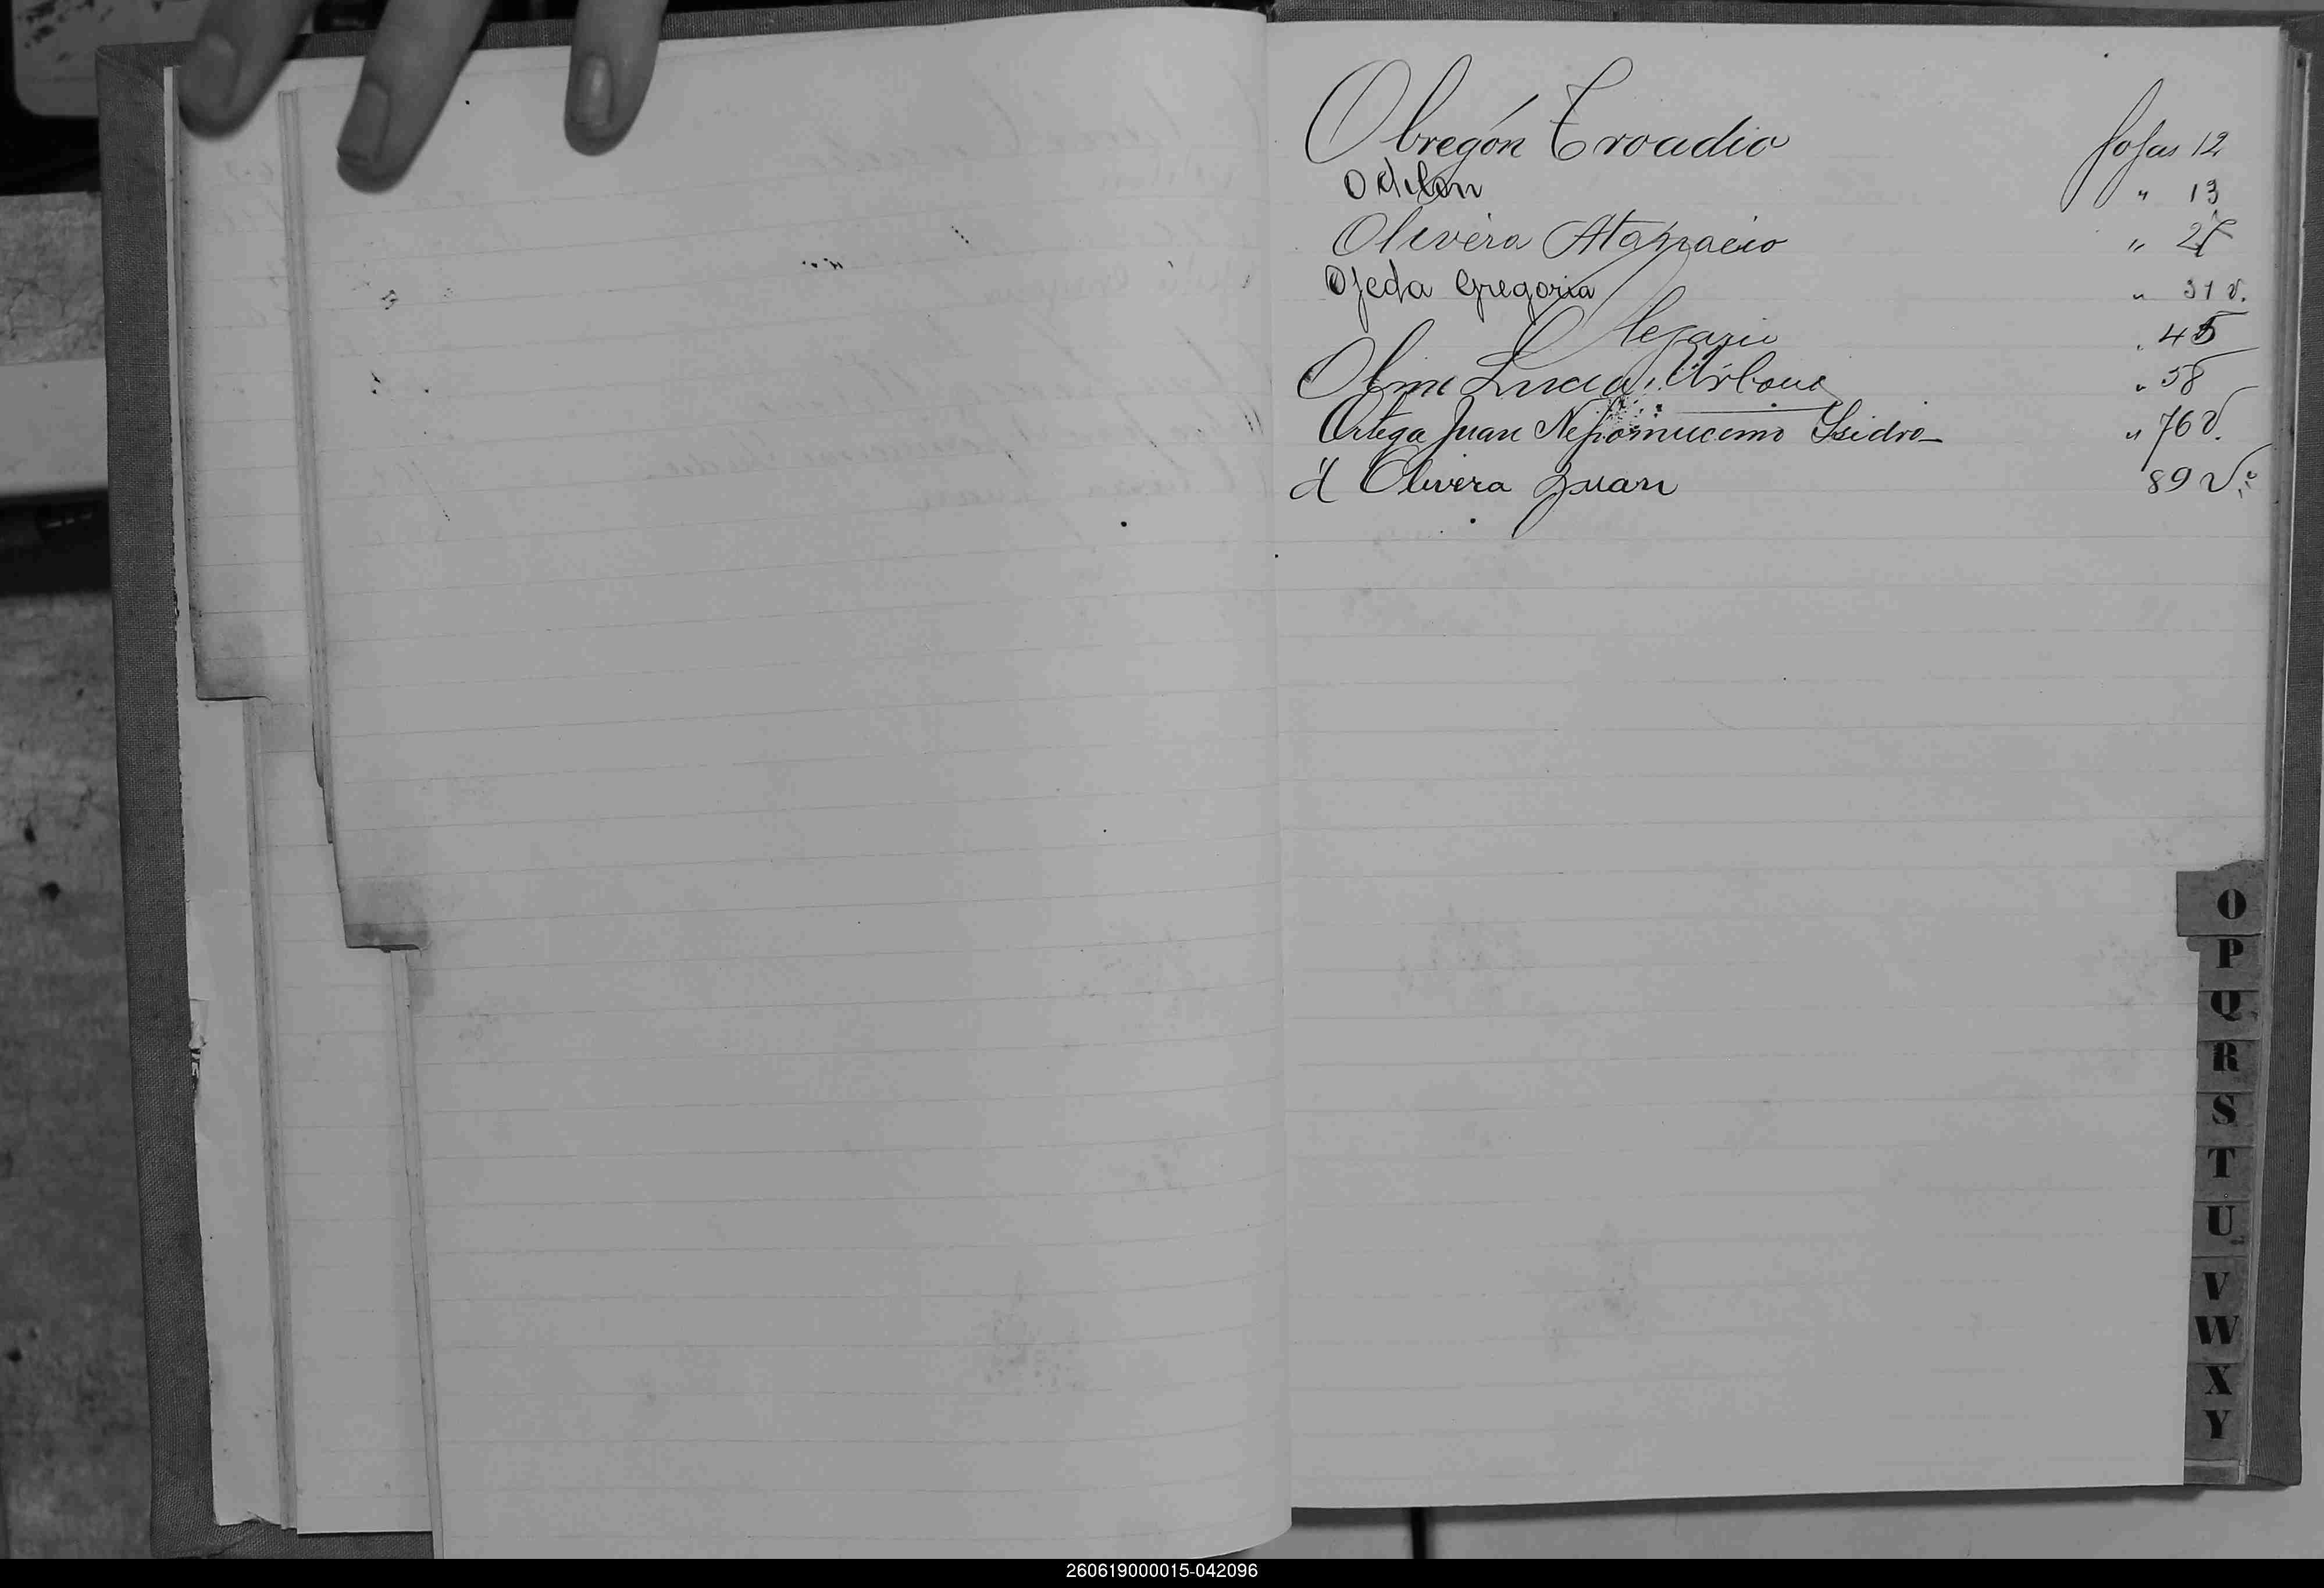 Obregón Troadio fojas 12
Odilon " 13
Olivera Atanacio " 27
Ojeda Gregoria " 31 v.
Olegario " 45
Olme Lucia Urbana " 58
Ortega Juan Nepomuceno Isidro " 76 v.
Olivera Juan 89 v.
O
P
Q
R
S
T
U
V
W
X
Y
260619000015-042096